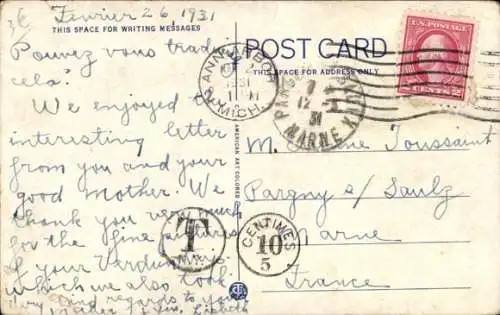 Fevrier 26, 1931
THIS SPACE FOR WRITING MESSAGES
Pouvez vous trad
cela?
We enjoyed
interesting letter
from you and your
good mother. We
thank you very much
for the fine pictures
of your Verdun
which we also took.
and regards to you
POST CARD
THIS SPACE FOR ADDRESS ONLY
ANN ARBOR
1931
MICH.
MARNE
12
31
U.S. POSTAGE
CENTS 2
M. Toussaint
Pargny s/ Saulx
Marne
France
T
CENTIMES
10
5
AMERICAN ART COLORED